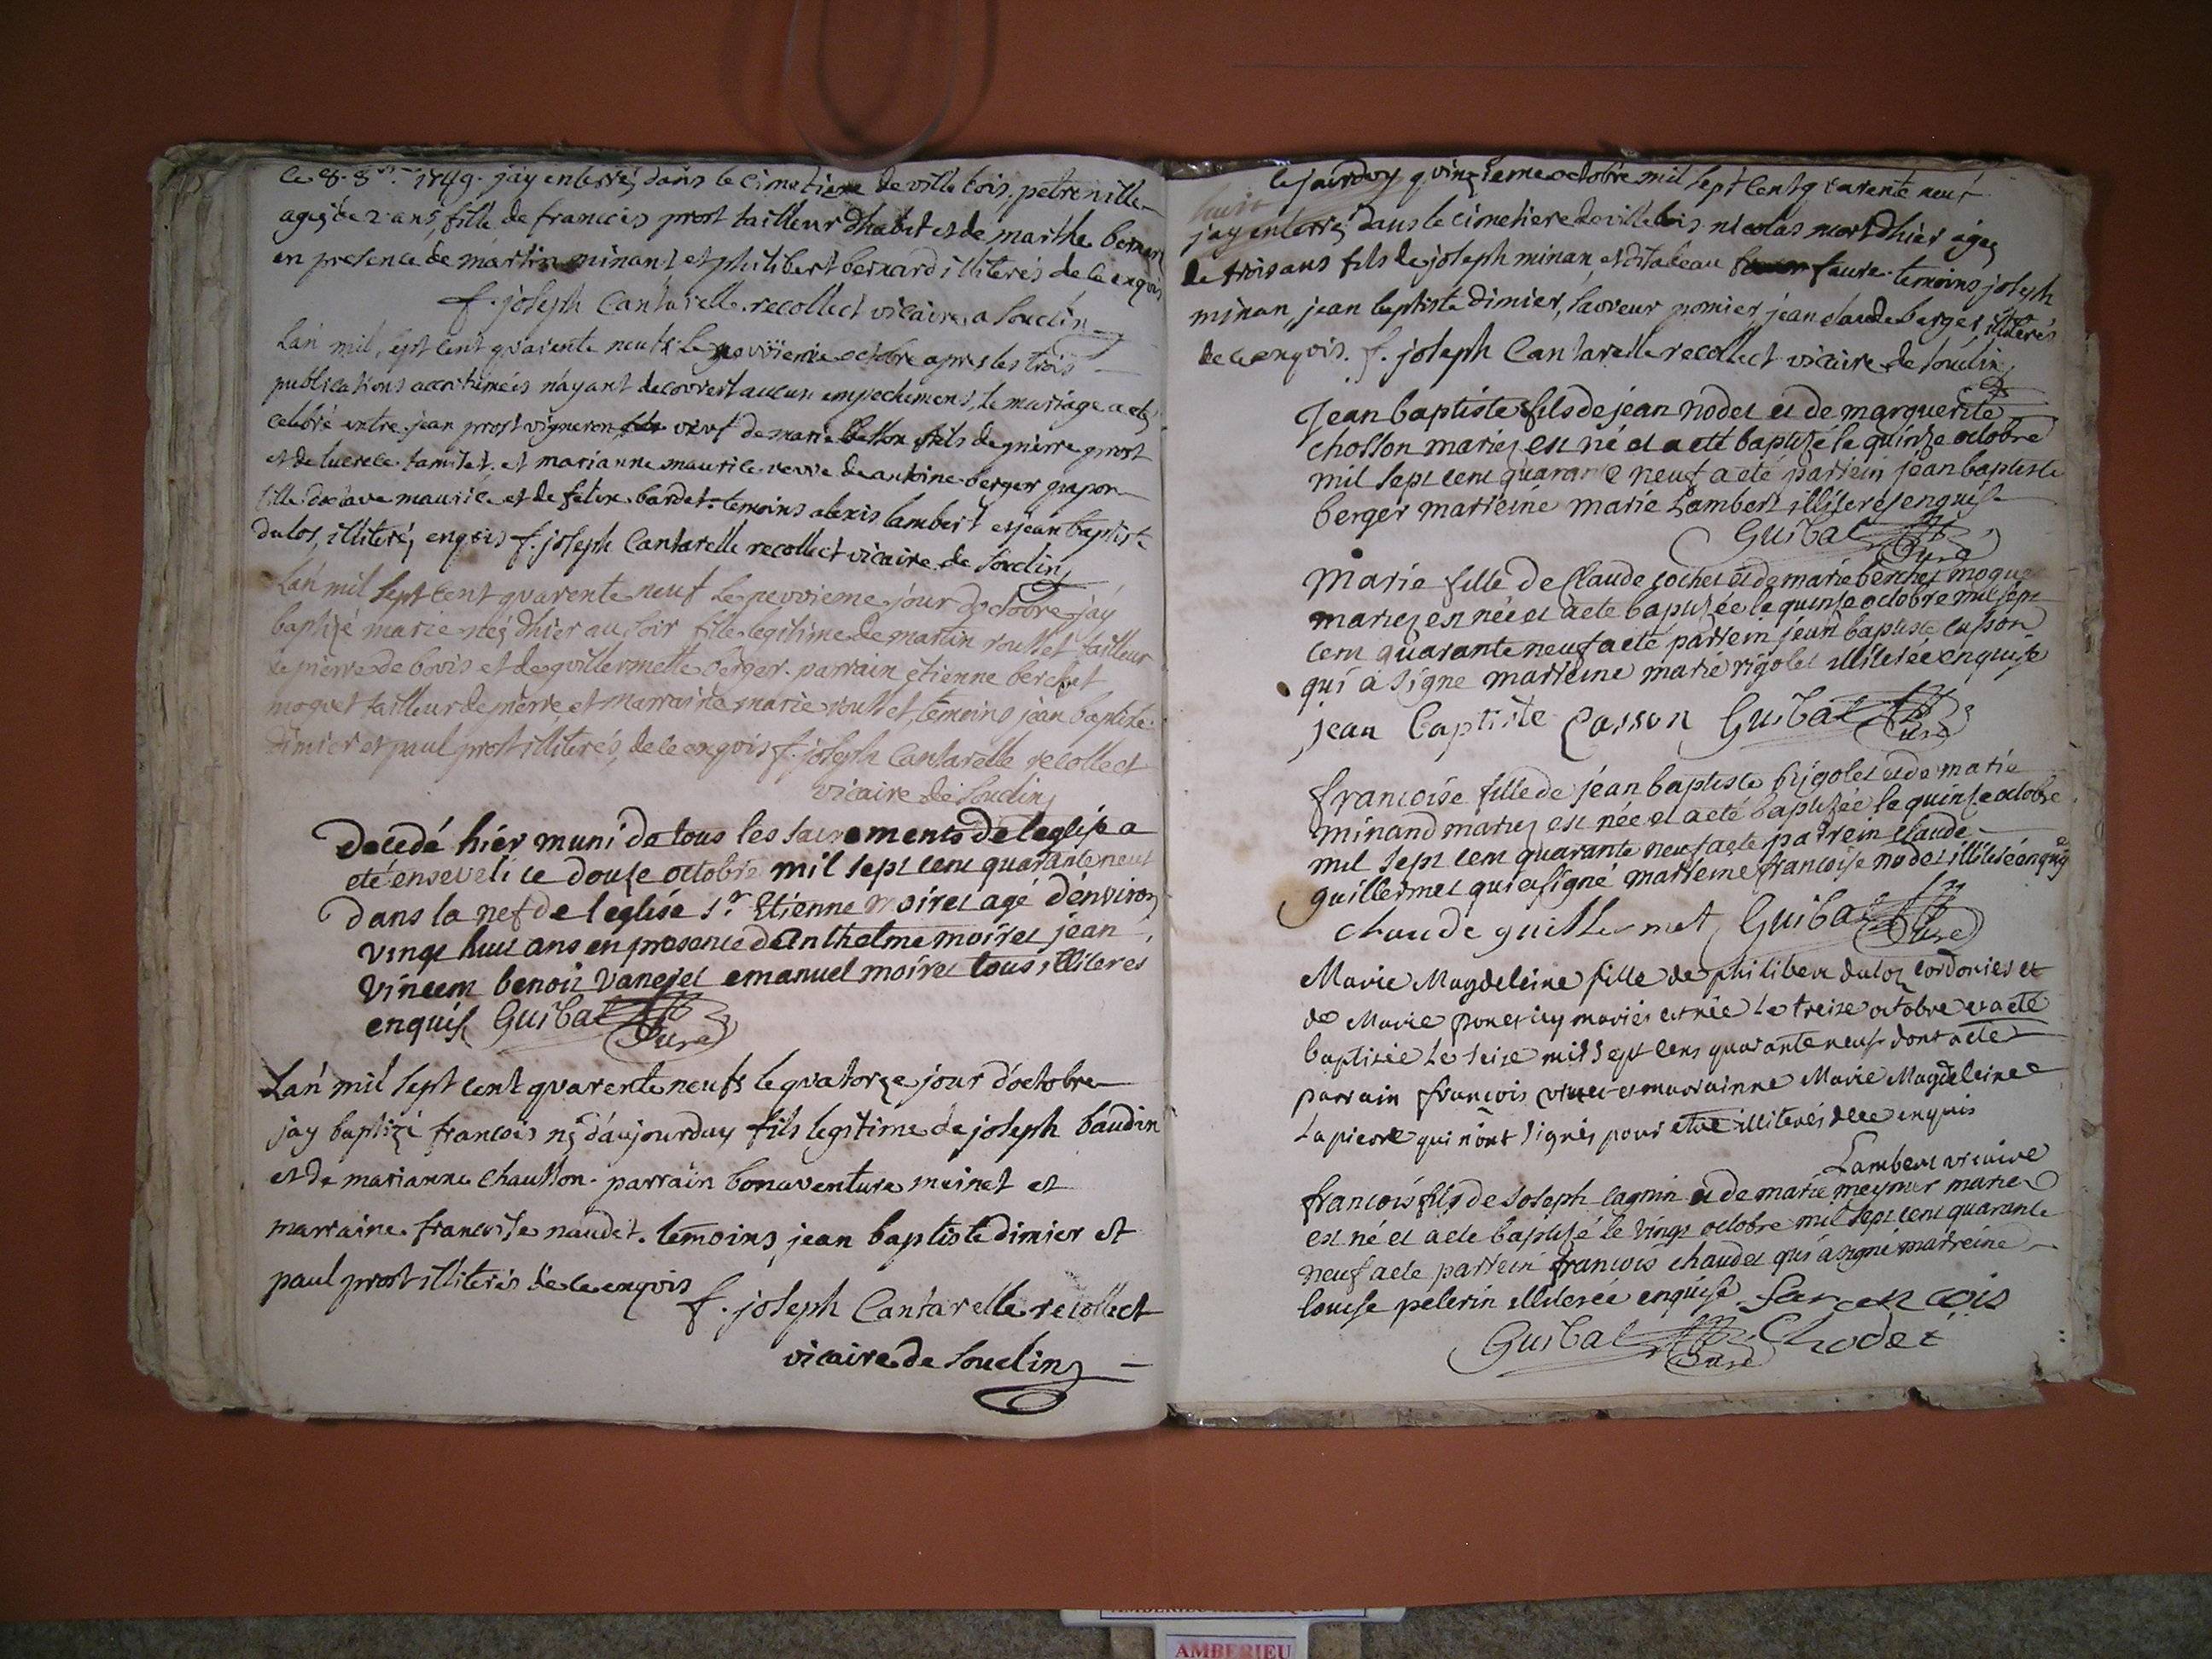 ce 8. 8bre 1749. jay enterré dans le cimetiere de ville bois. petrenille
ageé de 2 ans, fille de francois prost tailleur dhabit et de marthe bernard
en presence de martin minant et philibert bernard illiterés de ce enquis
f. joseph Cantarelle recollect vicaire a soudin
Lan mil sept cent quarente neufs le neuvieme octobre apres les trois
publications accoutumées nayant decouvert aucun empechement, le mariage a eté
celebré entre jean prost vigneron veuf de marie besson fils de pierre prost
et de lucrece tamiset. et marianne maurice veuve de antoine berger grapon
fille doctave maurice et de feline bardet. temoins alexis lambert et jean baptiste
dulos, illiteré, enquis f. joseph Cantarelle recollect vicaire de soudin
Lan mil sept cent quarente neuf le neuvieme jour doctobre jay
baptizé marie neé dhier au soir fille legitime de martin rousset tailleur
de pierre de bovis et de guillermette berger. parrain etienne berchet
moguet tailleur de pierre et marraine marie rousset, temoins jean baptiste
dimier et paul prost illiterés, de ce enquis f. joseph Cantarelle recollect
vicaire de soudin
Decedé hier muni de tous les sacrements de leglise a
eté enseveli ce douse octobre mil sept cent quarante neuf
dans la nef de leglise sr. Etienne moiret agé denviron
vingt huit ans en presence dAnthelme moiret jean
vincent benoit vanejet emanuel moiret tous illiteres
enquis Guibal Curé
Lan mil sept cent quarente neufs le quatorze jour doctobre
jay baptizé francois né daujourduy fils legitime de joseph baudin
et de marianne chausson. parrain bonaventure meinet et
marraine francoise naudet. temoins jean baptiste dimier et
paul prost illiterés de ce enquis
f. joseph Cantarelle recollect
vicaire de soudin
lejourduy quinzieme octobre mil sept cent quarente neuf
jay enterré dans le cimetiere de ville bois nicolas mort dhier ageé
de trois ans fils de joseph minan et ditabeau faure. temoins joseph
minan, jean baptiste dimier, sauveur pomier, jean claude berger, illiterés
de ce enquis. f. joseph Cantarelle recollect vicaire de soudin
Jean baptiste fils de jean nodet et de marguerite
chosson mariez est né et a eté baptizé le quinze octobre
mil sept cent quarante neuf a eté parrein jean baptiste
berger marreine marie Lambert illiteres enquis
Guibal Curé
Marie fille de Claude cochet et de marie berchet moguet
mariez est née et a eté baptizée le quinse octobre mil sept
cent quarante neuf a eté parrein jean baptiste casson
qui a signe marreine marie rigolet illiterée enquise
jean baptiste Casson Guibal Curé
francoise fille de jean baptiste rigolet et de marie
minand mariez est née et a eté baptizée le quinse octobre
mil sept cent quarante neuf a eté parrein Claude
guillermet qui a signé marreine francoise nodet illiterée enquise
claude guillermet Guibal Curé
Marie Magdeleine fille de philibert duloz cordonier et
de Marie poncet icy mariés est née le treize octobre et a eté
baptisée le seize mil sept cens quarante neuf dont acte
parrain françois et marrainne Marie Magdeleine
Lapierre qui n'ont signés pour etre illiterés de ce enquis
Lambert vicaire
francois fils de Joseph cagnin et de marie meynier mariez
est né et a eté baptizé le vingt octobre mil sept cent quarante
neuf a eté parrein francois chaudet qui a signé marreine
louise pelerin illiterée enquise farencois
Guibal Curé Chodet
AMBERIEU